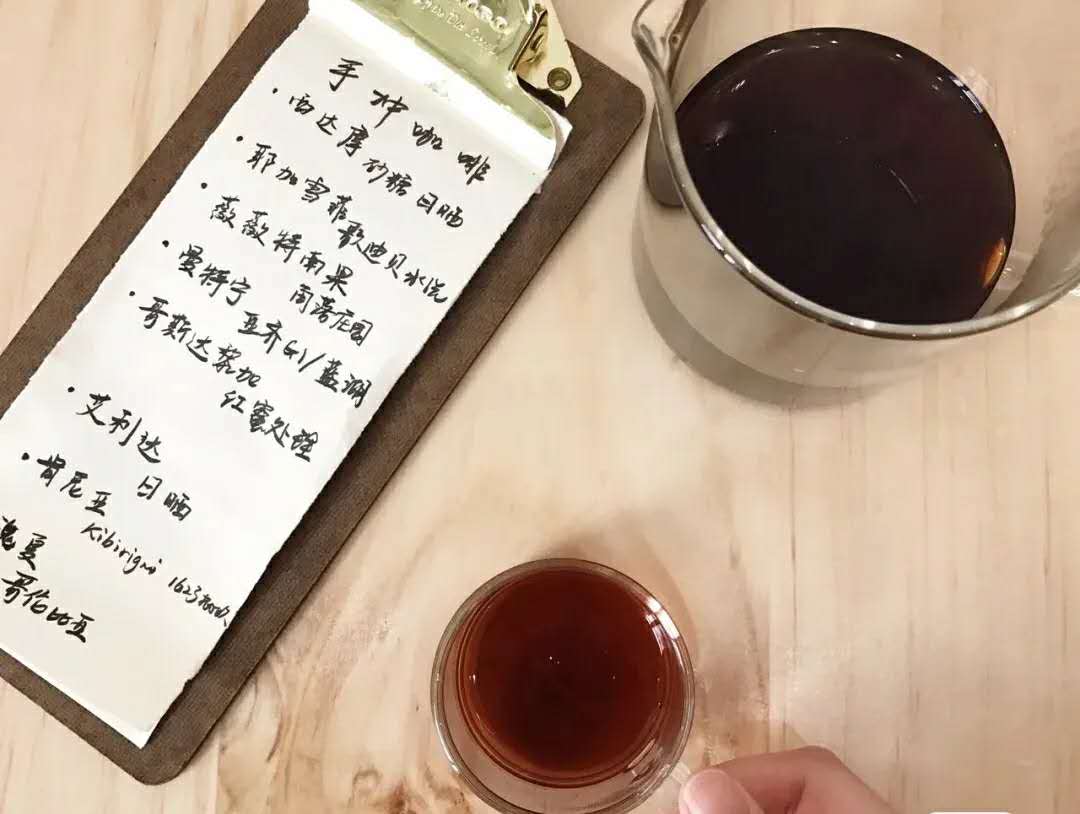 手冲咖啡
· 西达摩 砂糖日晒
· 耶加雪菲 歌迪贝水洗
· 薇薇特南果 周落庄园
· 曼特宁 亚齐G1/蓝湖
· 哥斯达黎加 红蜜处理
· 艾利达 日晒
· 肯尼亚 Kibirigwi
瑰夏
哥伦比亚